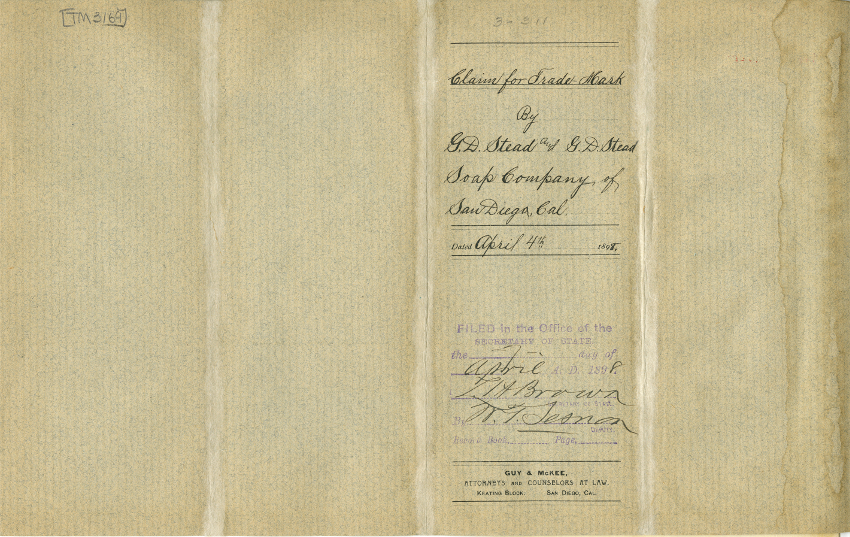 TM 3164
3-311
Claim for Trade Mark
By
G. D. Stead and G. D. Stead
Soap Company, of
San Diego, Cal.
Dated April 4th 1898.
FILED in the Office of the
SECRETARY OF STATE
the day of
April A. D. 1898.
L. H. Brown
Secretary of State
By W. T.
Deputy.
Record Book, Page,
GUY & McKEE,
ATTORNEYS AND COUNSELORS AT LAW.
KEATING BLOCK. SAN DIEGO, CAL.